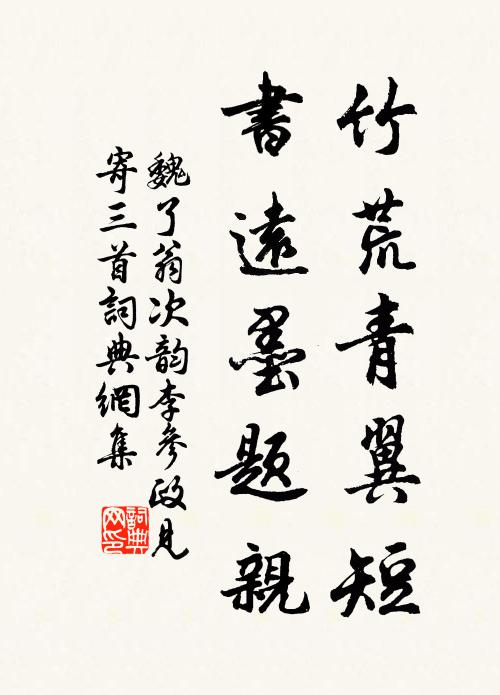 竹荒青翼短
書遠墨題親
魏了翁次韵李參政見
寄三首詞典網集
詞典
网印